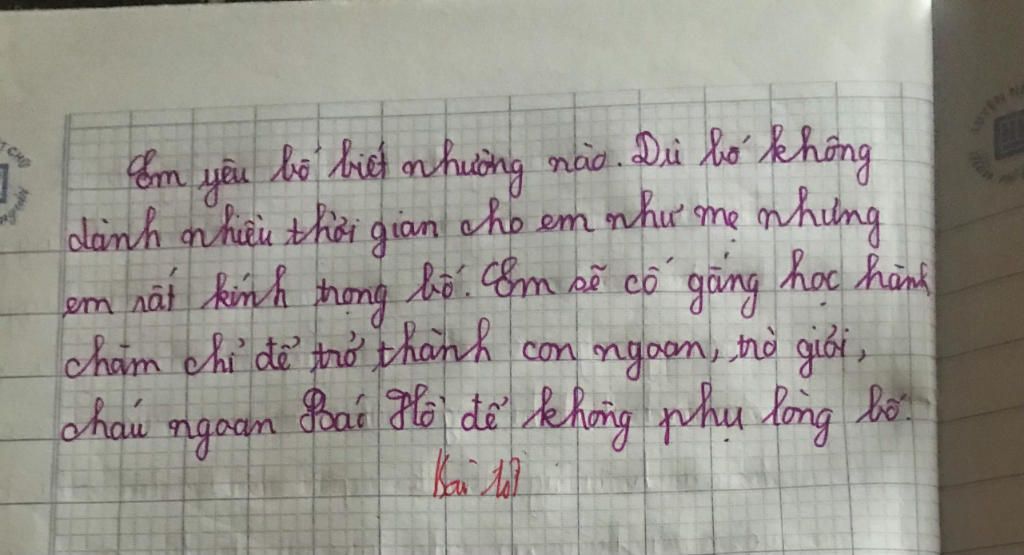 Em yêu bố biết nhường nào. Dù bố không
dành nhiều thời gian cho em như mẹ nhưng
em rất kính trọng bố. Em sẽ cố gắng học hành
chăm chỉ để trở thành con ngoan, trò giỏi,
cháu ngoan Bác Hồ để không phụ lòng bố.
Bài tốt